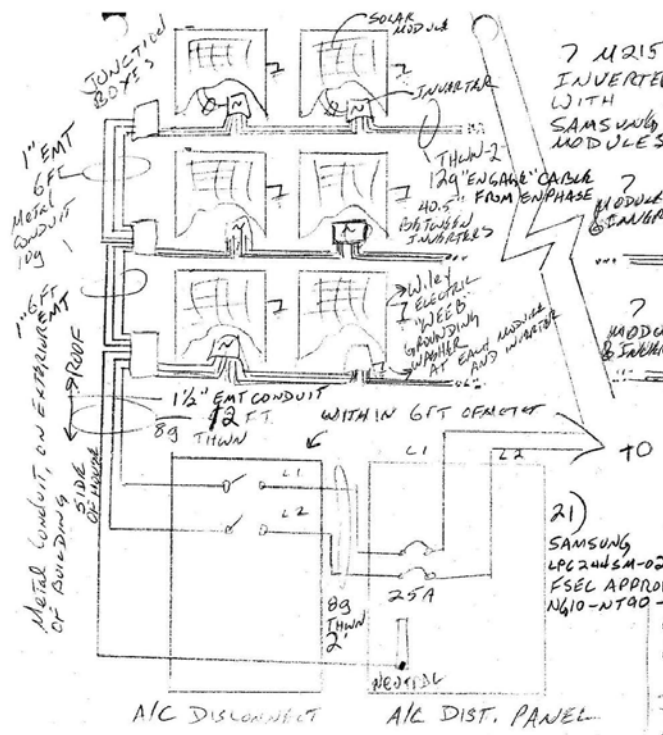 JUNCTION
BOXES
SOLAR
MODULE
INVERTER
7 M215
INVERTE
WITH
SAMSUNG
MODULES
1" EMT
6FT
METAL
CONDUIT
10g
THWN-2
12g "ENGAGE" CABLE
FROM ENPHASE
40.5"
BETWEEN
INVERTERS
7
MODULE
& INVER
1" 6FT
EMT
Wiley
ELECTRIC
"WEEB"
GROUNDING
WASHER
AT EACH MODULE
AND INVERTER
7
MODU
& INVER
ROOF
SIDE
OF HOUSE
METAL CONDUIT, ON EXTERIOR
OF BUILDING
1 1/2" EMT CONDUIT
12 FT.
8g
THWN
WITHIN 6FT OF METER
L1
L2
TO
L1
L2
8g
THWN
2'
25A
NEUTRAL
21)
SAMSUNG
LPC244SM-02
FSEL APPRO
NG10-NT90-
A/C DISCONNECT
A/C DIST. PANEL